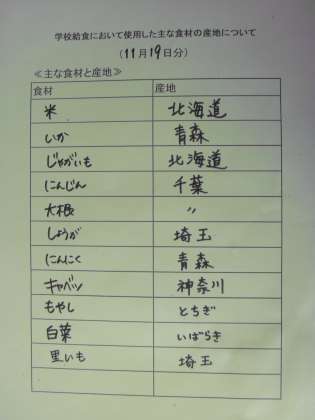 学校給食において使用した主な食材の産地について
(11月19日分)
≪主な食材と産地≫
食材 産地
米 北海道
いか 青森
じゃがいも 北海道
にんじん 千葉
大根 〃
しょうが 埼玉
にんにく 青森
キャベツ 神奈川
もやし とちぎ
白菜 いばらき
里いも 埼玉